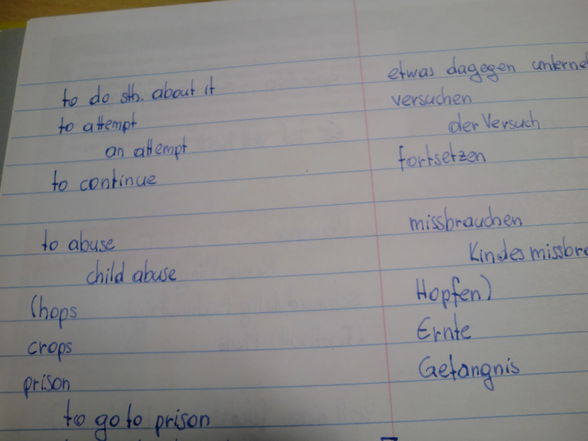 to do sth. about it etwas dagegen
to attempt versuchen
an attempt der Versuch
to continue fortsetzen
to abuse missbrauchen
child abuse
(hops Hopfen)
crops Ernte
prison Gefängnis
to go to prison